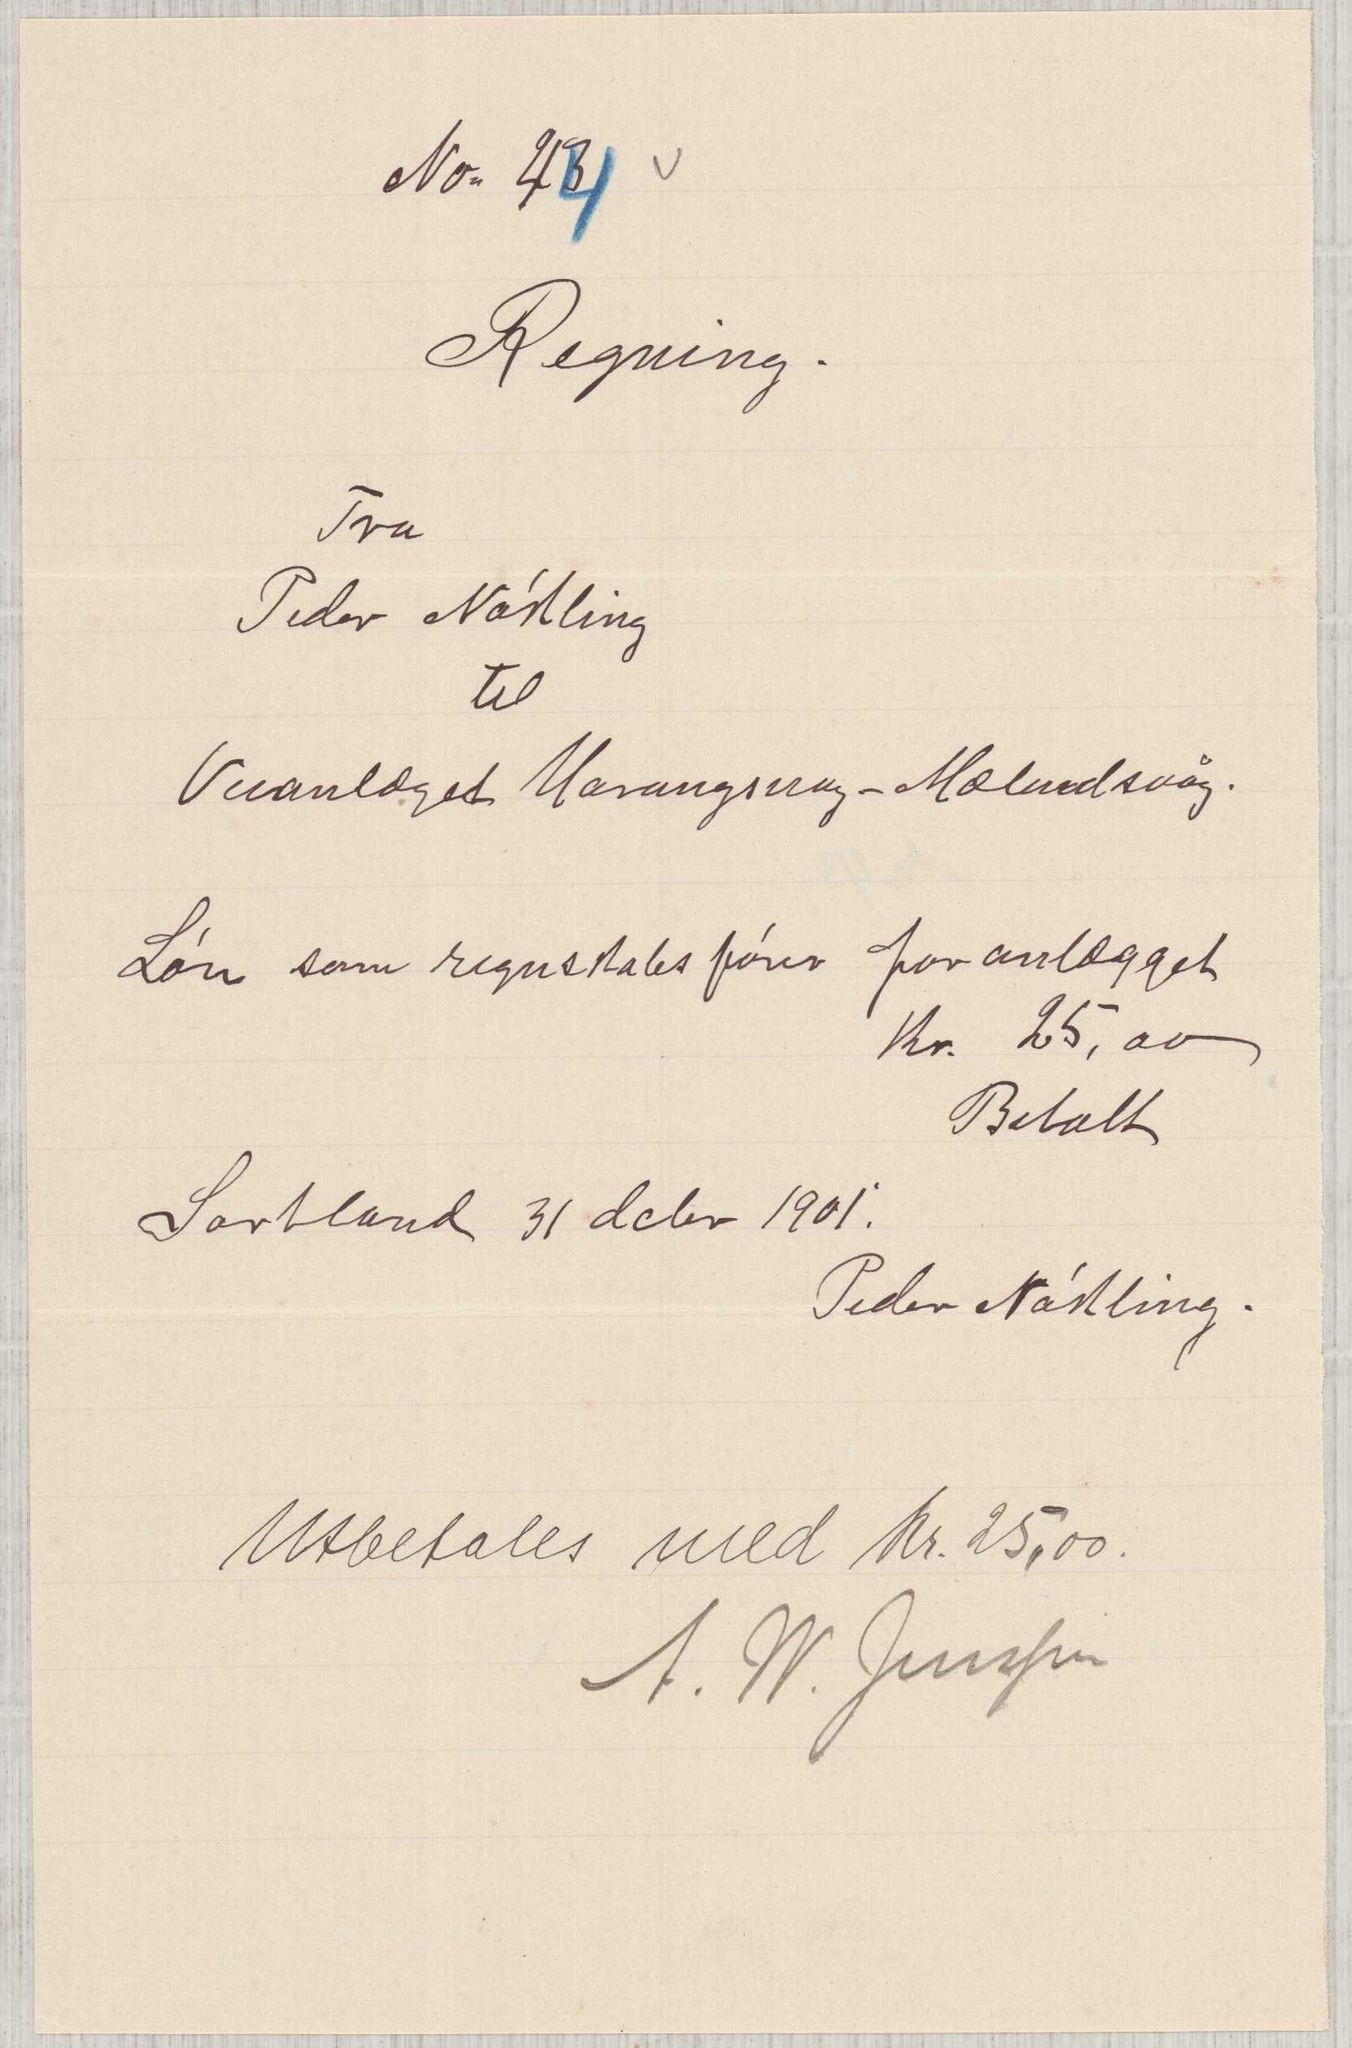 No. 44 v
Regning.
Fra
Peder Nökling
til
Veianlæget Maurangsnæs - Mælandsvåg.
Lón som regnskabsfórer for anlægget
Kr. 25,00
Betalt
Sortland 31 deber 1901.
Peder Nökling.
Utbetales med kr. 25,00.
A. W. Jenssen